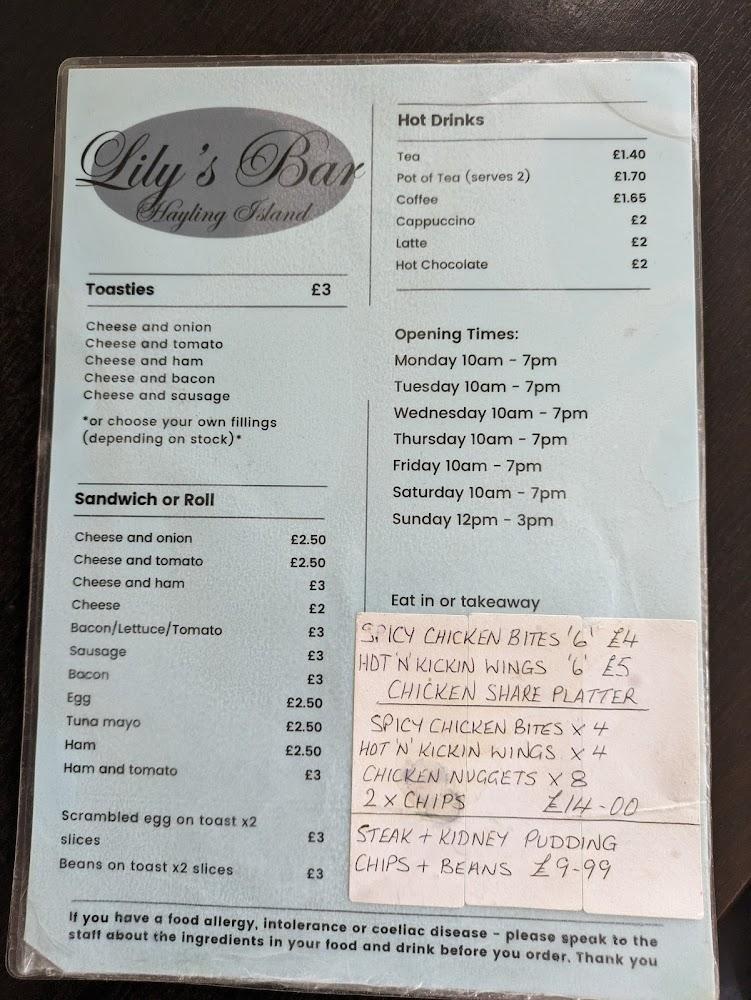 Lily's Bar
Hayling Island
Toasties £3
Cheese and onion
Cheese and tomato
Cheese and ham
Cheese and bacon
Cheese and sausage
*or choose your own fillings
(depending on stock)*
Sandwich or Roll
Cheese and onion £2.50
Cheese and tomato £2.50
Cheese and ham £3
Cheese £2
Bacon/Lettuce/Tomato £3
Sausage £3
Bacon £3
Egg £2.50
Tuna mayo £2.50
Ham £2.50
Ham and tomato £3
Scrambled egg on toast x2
slices £3
Beans on toast x2 slices £3
Hot Drinks
Tea £1.40
Pot of Tea (serves 2) £1.70
Coffee £1.65
Cappuccino £2
Latte £2
Hot Chocolate £2
Opening Times:
Monday 10am - 7pm
Tuesday 10am - 7pm
Wednesday 10am - 7pm
Thursday 10am - 7pm
Friday 10am - 7pm
Saturday 10am - 7pm
Sunday 12pm - 3pm
Eat in or takeaway
SPICY CHICKEN BITES '6' £4
HOT 'N' KICKIN WINGS '6' £5
CHICKEN SHARE PLATTER
SPICY CHICKEN BITES x 4
HOT 'N' KICKIN WINGS x 4
CHICKEN NUGGETS x 8
2 x CHIPS £14-00
STEAK + KIDNEY PUDDING
CHIPS + BEANS £9-99
If you have a food allergy, intolerance or coeliac disease - please speak to the
staff about the ingredients in your food and drink before you order. Thank you